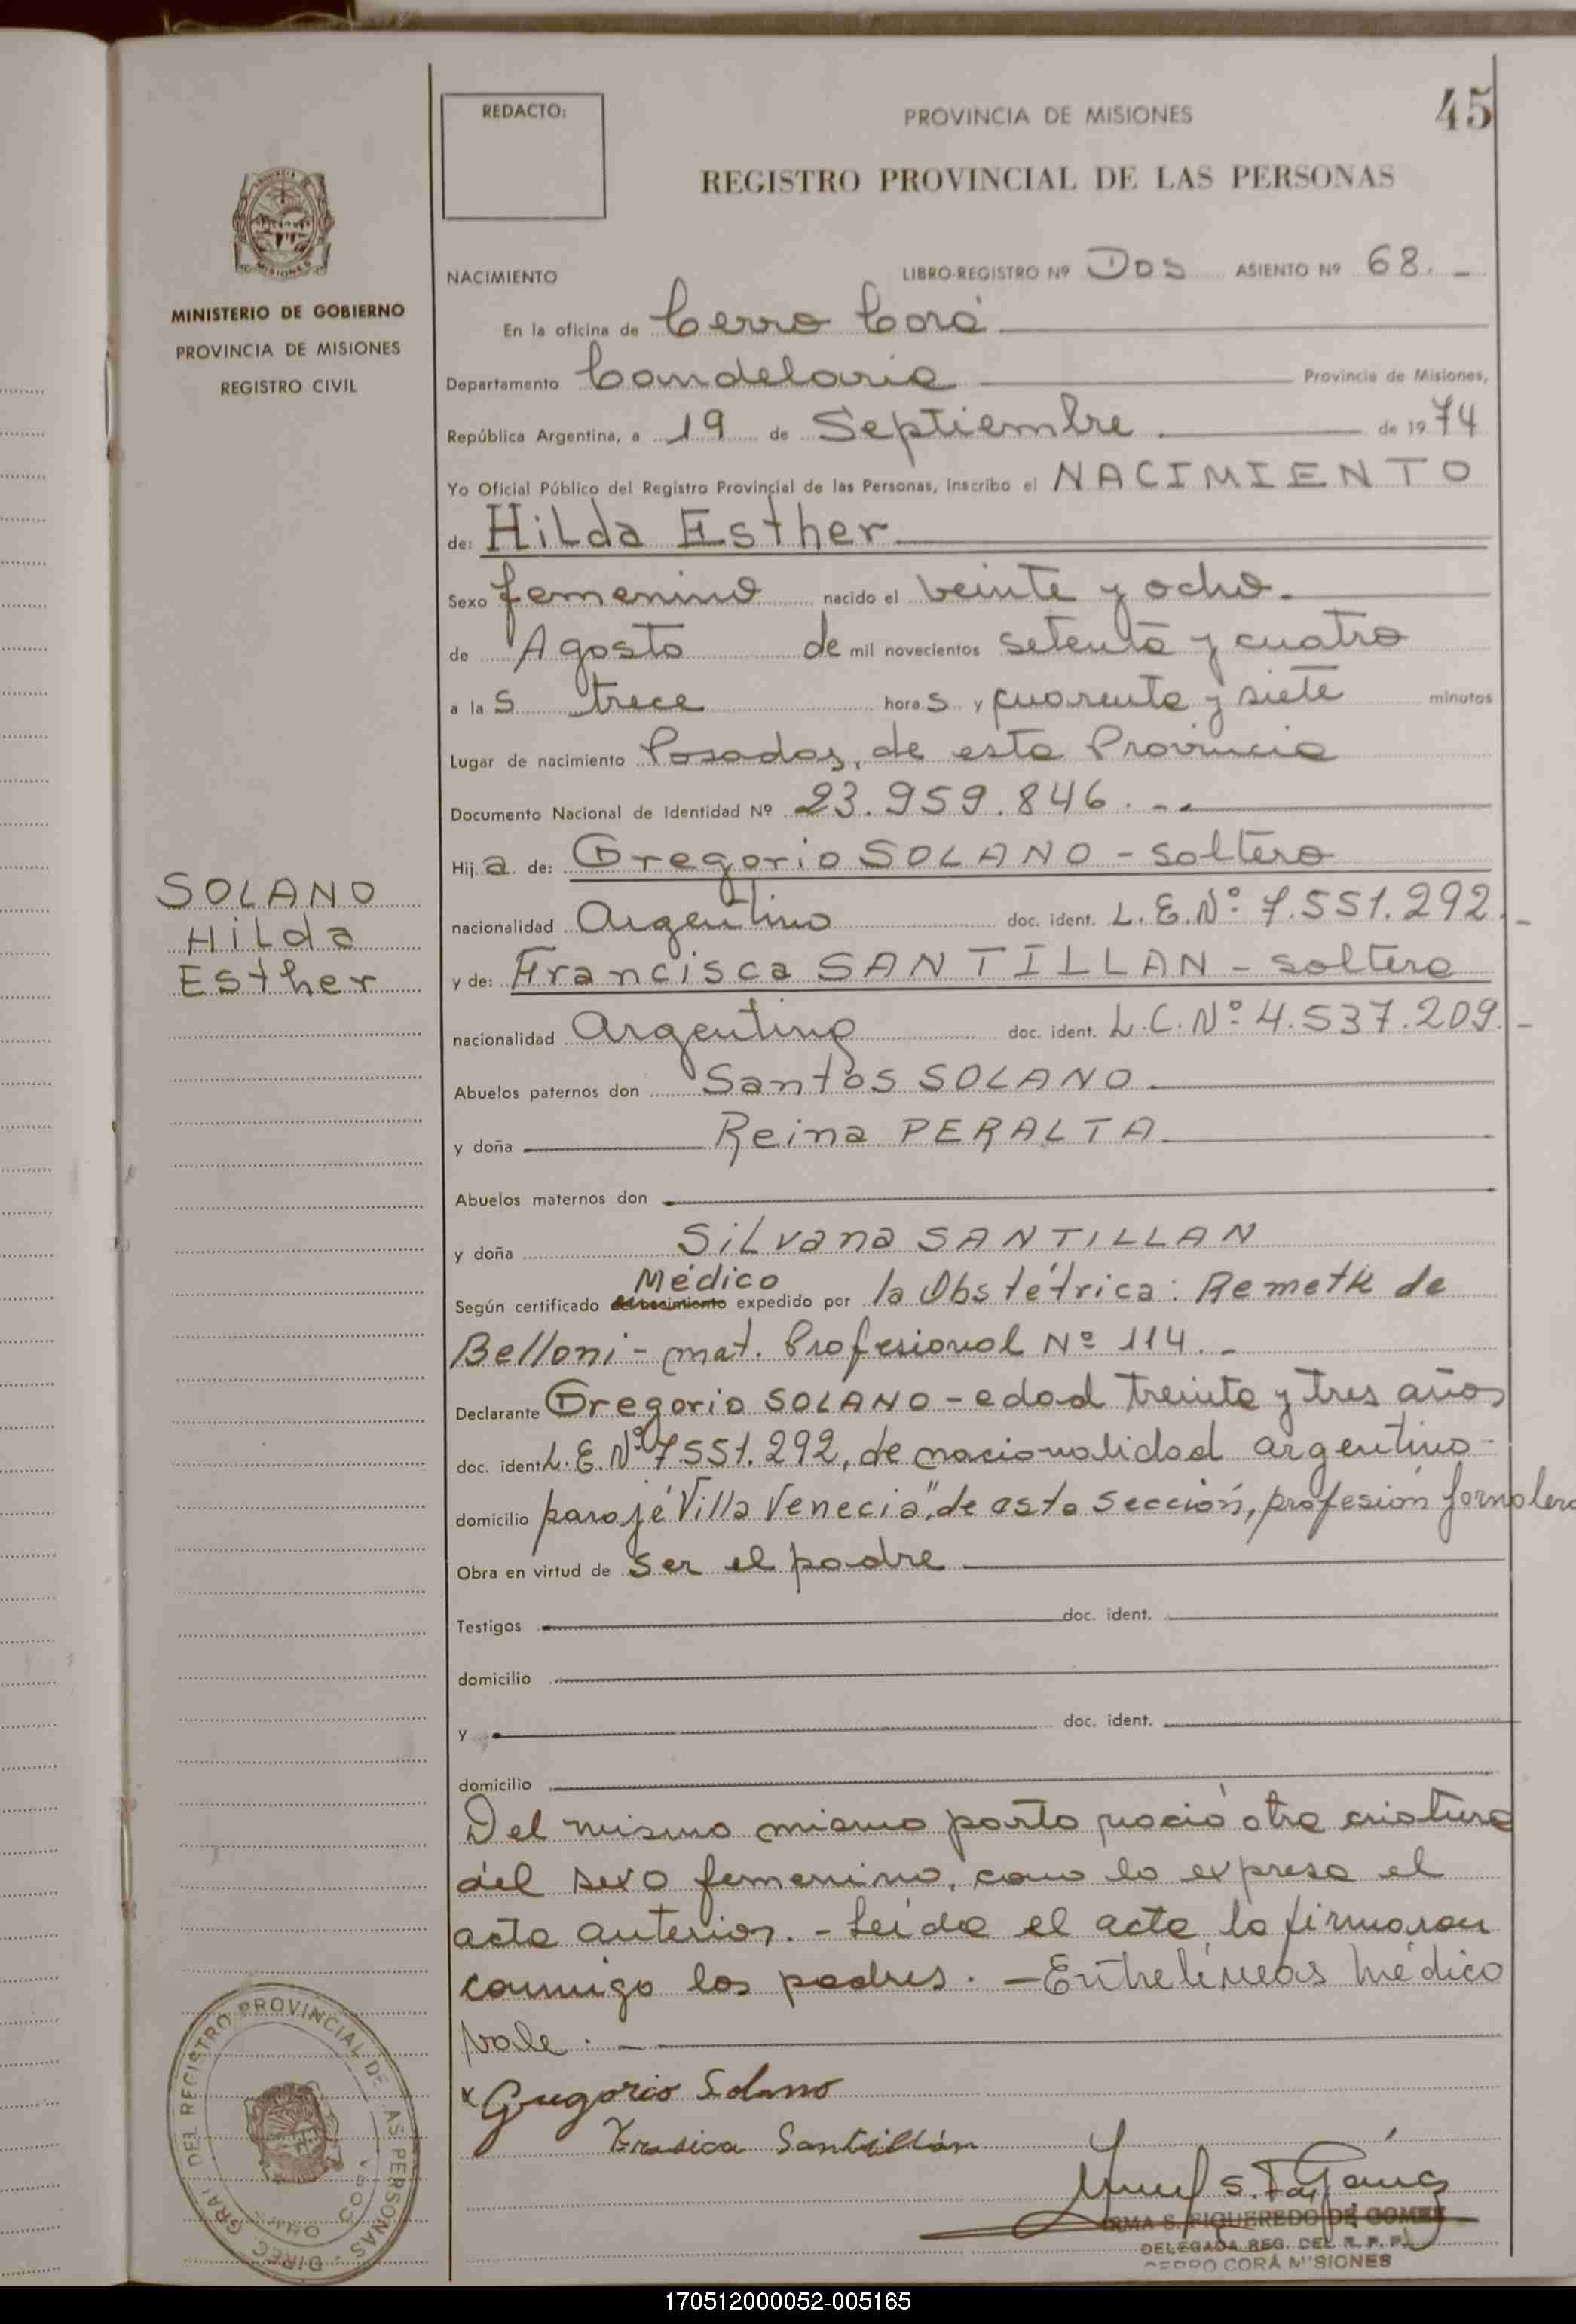 45
REDACTO:
PROVINCIA DE MISIONES
REGISTRO PROVINCIAL DE LAS PERSONAS
MISIONES
MINISTERIO DE GOBIERNO
PROVINCIA DE MISIONES
REGISTRO CIVIL
NACIMIENTO LIBRO-REGISTRO Nº Dos ASIENTO Nº 68. -
En la oficina de Cerro Corá
Departamento Candelaria Provincia de Misiones,
República Argentina, a 19 de Septiembre de 1974
Yo Oficial Público del Registro Provincial de las Personas, inscribo el NACIMIENTO
de: Hilda Esther
Sexo femenino nacido el veinte y ocho.
de Agosto de mil novecientos setenta y cuatro
a las trece horas y cuarenta y siete minutos
Lugar de nacimiento Posadas, de esta Provincia
Documento Nacional de Identidad Nº 23.959.846.--
Hija de: Gregorio SOLANO - soltero
nacionalidad Argentino doc. ident. L.E.Nº 7.551.292.-
y de: Francisca SANTILLAN - soltera
nacionalidad Argentina doc. ident. L.C.Nº 4.537.209.-
Abuelos paternos don Santos SOLANO
y doña Reina PERALTA
Abuelos maternos don
y doña Silvana SANTILLAN
Médico
Según certificado expedido por la Obstétrica: Remetk de
Belloni - mat. Profesional Nº 114.-
Declarante Gregorio SOLANO - edad treinta y tres años
doc. ident L.E.Nº 7.551.292, de nacionalidad argentino -
domicilio paraje "Villa Venecia", de esta sección, profesión jornalero
Obra en virtud de ser el padre
Testigos doc. ident.
domicilio
y doc. ident.
domicilio
Del mismo mismo parto nació otra criatura
del sexo femenino, como lo expresa el
acta anterior. - Leída el acta la firmaron
conmigo los padres. - Entrelíneas Médico
vale. -
SOLANO
Hilda
Esther
x Gregorio Solano
Santillán
IRMA S. FIGUEREDO DE GOMEZ
DELEGADA REG. DEL R. P. P.
CERRO CORÁ MISIONES
DIREC. GRAL. DEL REGISTRO PROVINCIAL DE LAS PERSONAS
170512000052-005165